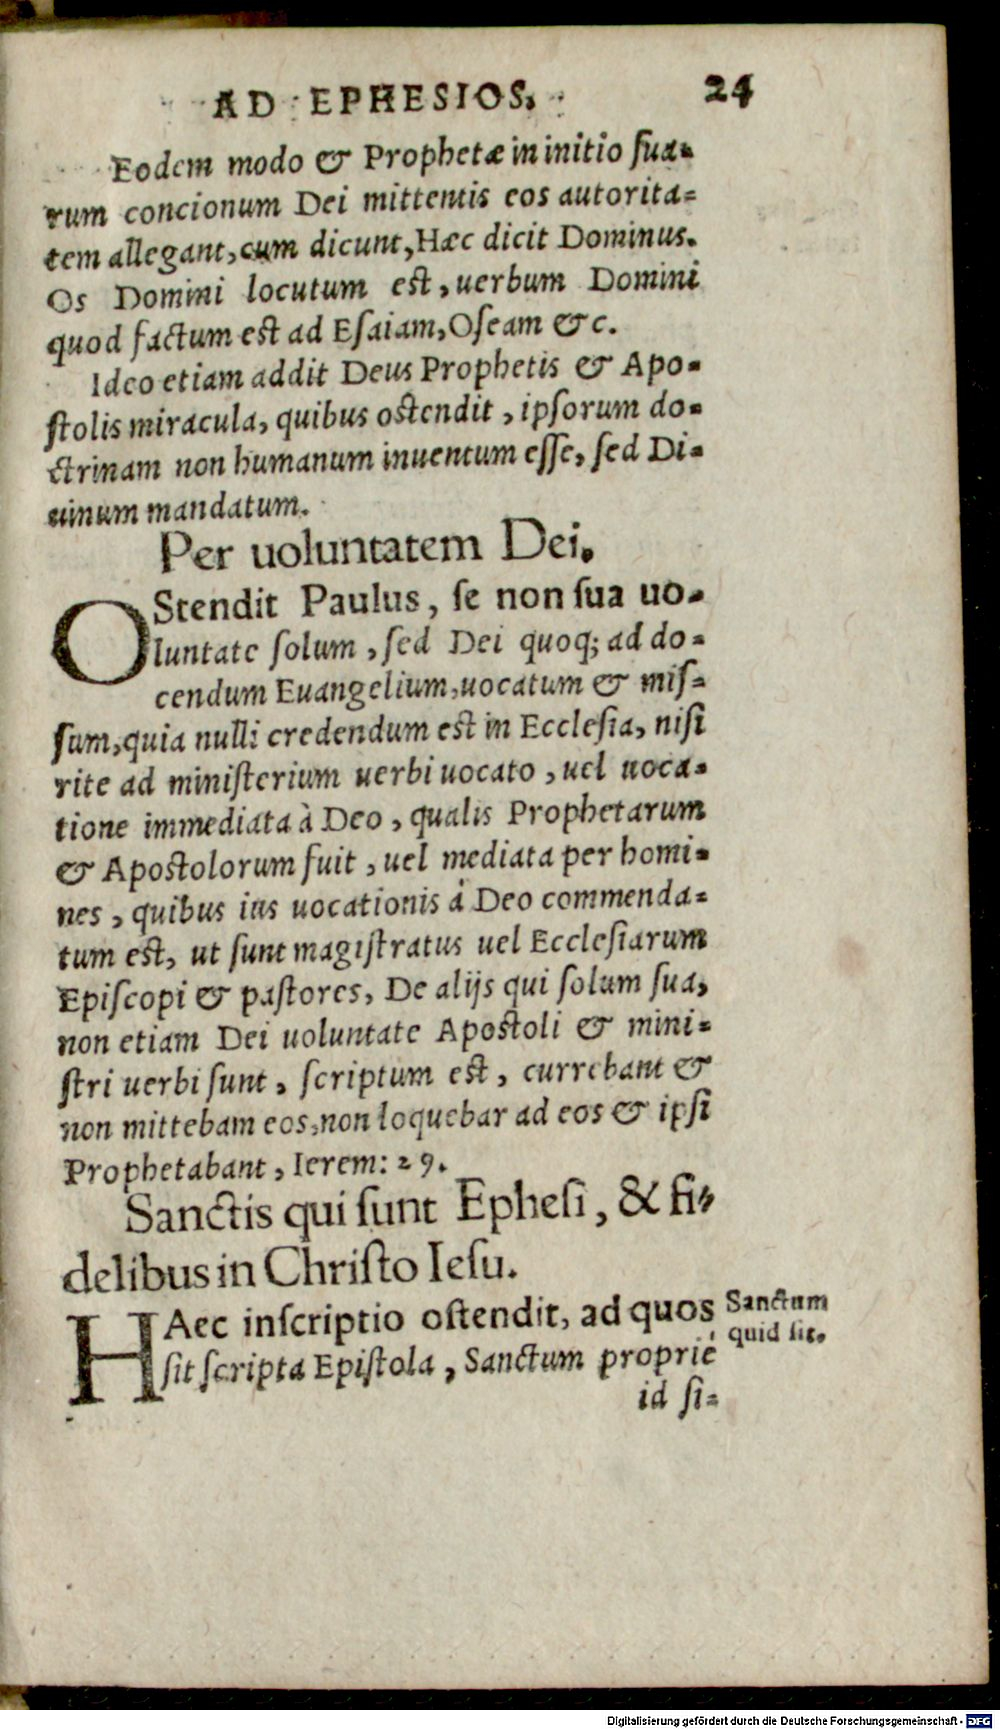 AD EPHESIOS. 24
Eodem modo & Prophetæ in initio sua-
rum concionum Dei mittentis eos autorita-
tem allegant, cum dicunt, Hæc dicit Dominus.
Os Domini locutum est, uerbum Domini
quod factum est ad Esaiam, Oseam &c.
Ideo etiam addit Deus Prophetis & Apo-
stolis miracula, quibus ostendit, ipsorum do-
ctrinam non humanum inuentum esse, sed Di-
uinum mandatum.
Per uoluntatem Dei.
OStendit Paulus, se non sua uo-
luntate solum, sed Dei quoq; ad do-
cendum Euangelium, uocatum & mis-
sum, quia nulli credendum est in Ecclesia, nisi
rite ad ministerium uerbi uocato, uel uoca-
tione immediata à Deo, qualis Prophetarum
& Apostolorum fuit, uel mediata per homi-
nes, quibus ius uocationis à Deo commenda-
tum est, ut sunt magistratus uel Ecclesiarum
Episcopi & pastores, De alijs qui solum sua,
non etiam Dei uoluntate Apostoli & mini-
stri uerbi sunt, scriptum est, currebant &
non mittebam eos, non loquebar ad eos & ipsi
Prophetabant, Ierem: 29.
Sanctis qui sunt Ephesi, & fi-
delibus in Christo Iesu.
HAec inscriptio ostendit, ad quos
sit scripta Epistola, Sanctum proprié
id si-
Sanctum
quid sit.
Digitalisierung gefördert durch die Deutsche Forschungsgemeinschaft - DFG